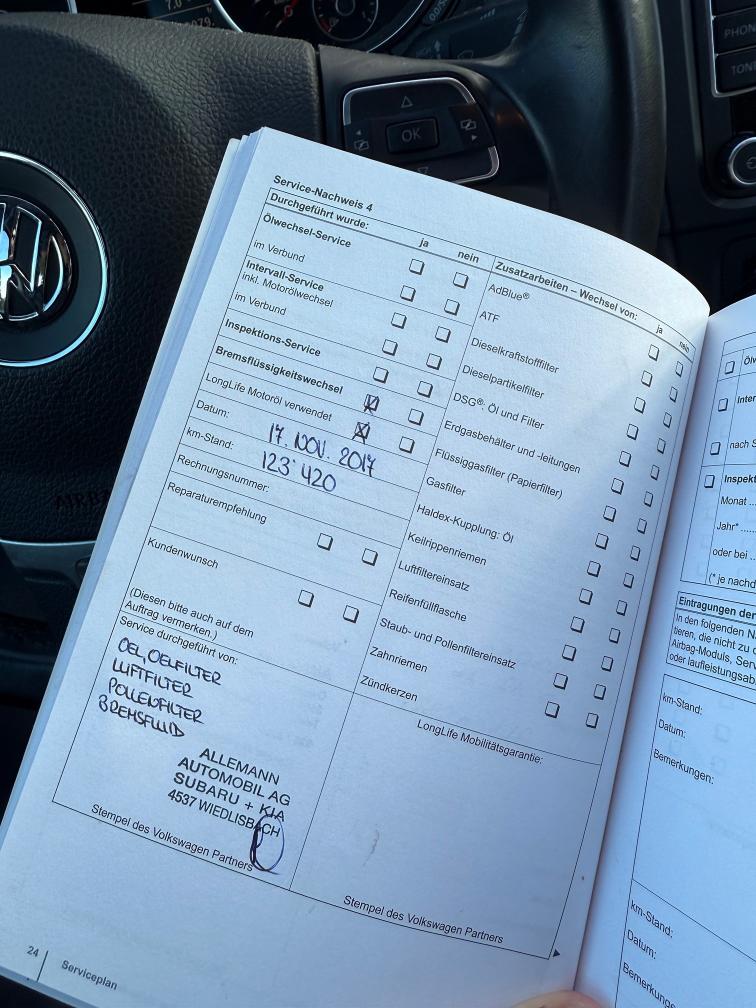 7.0
OK
PHON
TONE
AIRBAG
Service-Nachweis 4
Durchgeführt wurde:
ja
nein
Ölwechsel-Service
im Verbund
Intervall-Service
inkl. Motorölwechsel
im Verbund
Inspektions-Service
Bremsflüssigkeitswechsel
LongLife Motoröl verwendet
Datum:
17. NOV. 2017
km-Stand:
123'420
Rechnungsnummer:
Reparaturempfehlung
Kundenwunsch
(Diesen bitte auch auf dem
Auftrag vermerken.)
Service durchgeführt von:
OEL, OELFILTER
LUFTFILTER
POLLENFILTER
BREMSFLUID
ALLEMANN
AUTOMOBIL AG
SUBARU + KIA
4537 WIEDLISBACH
Stempel des Volkswagen Partners
Zusatzarbeiten – Wechsel von:
ja
nein
AdBlue®
ATF
Dieselkraftstofffilter
Dieselpartikelfilter
DSG®: Öl und Filter
Erdgasbehälter und -leitungen
Flüssiggasfilter (Papierfilter)
Gasfilter
Haldex-Kupplung: Öl
Keilrippenriemen
Luftfiltereinsatz
Reifenfüllflasche
Staub- und Pollenfiltereinsatz
Zahnriemen
Zündkerzen
LongLife Mobilitätsgarantie:
Stempel des Volkswagen Partners
24
Serviceplan
Ölw
Inter
nach S
Inspekt
Monat ...
Jahr* .....
oder bei ...
(* je nachd
Eintragungen der
In den folgenden N
tieren, die nicht zu d
Airbag-Moduls, Serv
oder laufleistungsab
km-Stand:
Datum:
Bemerkungen:
km-Stand:
Datum:
Bemerkung